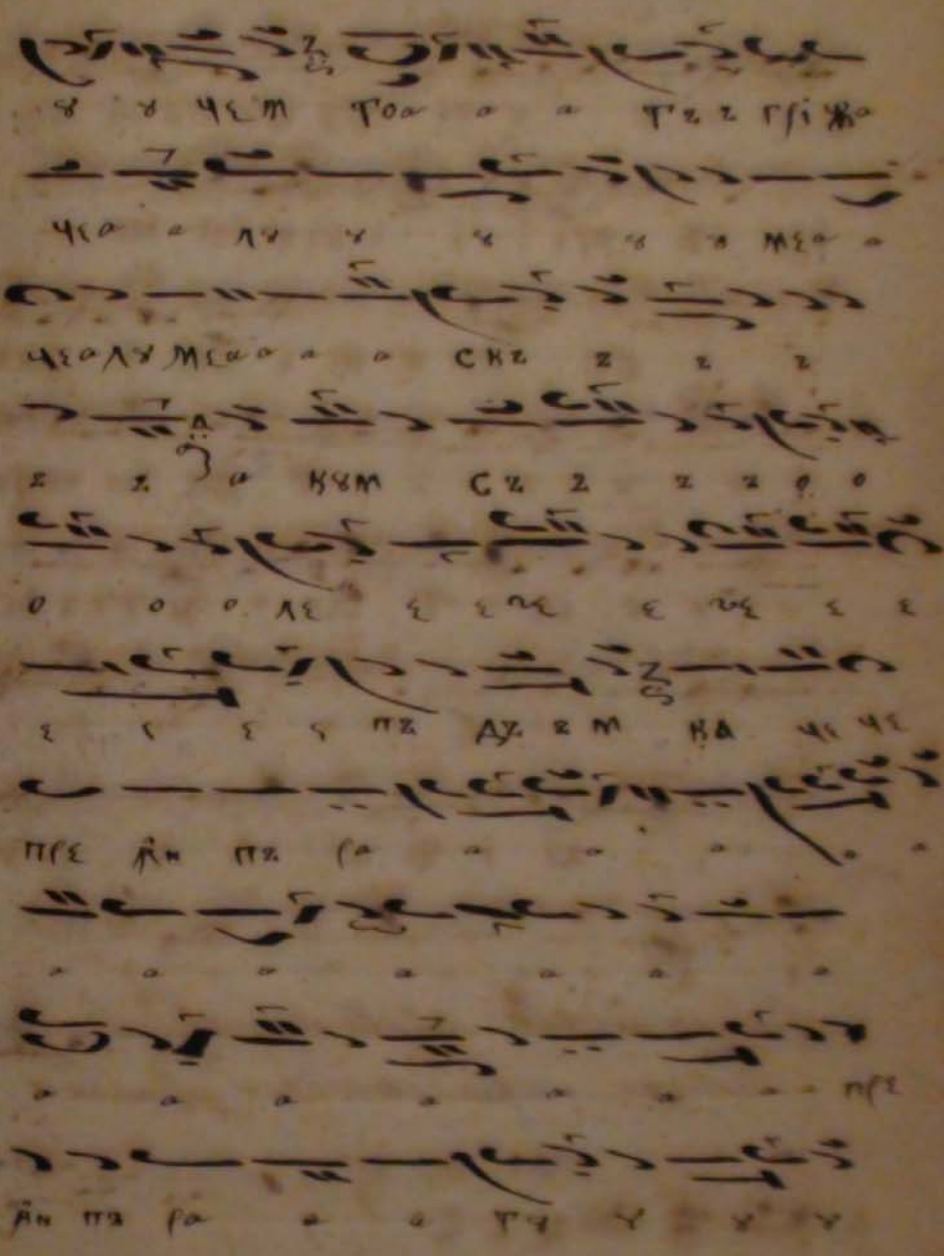 ꙋ ꙋ чєм тоа а а тъ ъ гріжа
чєа а лꙋ ꙋ ꙋ ꙋ ꙋ мєа а
чєалꙋмєаа а а скъ ъ ъ ъ
ъ ъ а кꙋм съ ъ ъ ъ о о
о о о лє є є чє є чє є є
є є є є пъ дъ ъ м ка чє чє
прє ꙟн пъ ра а а а а а
а а а а а а а
а а а а а а а прє
ꙟн пъ ра а а тꙋ ꙋ ꙋ ꙋ